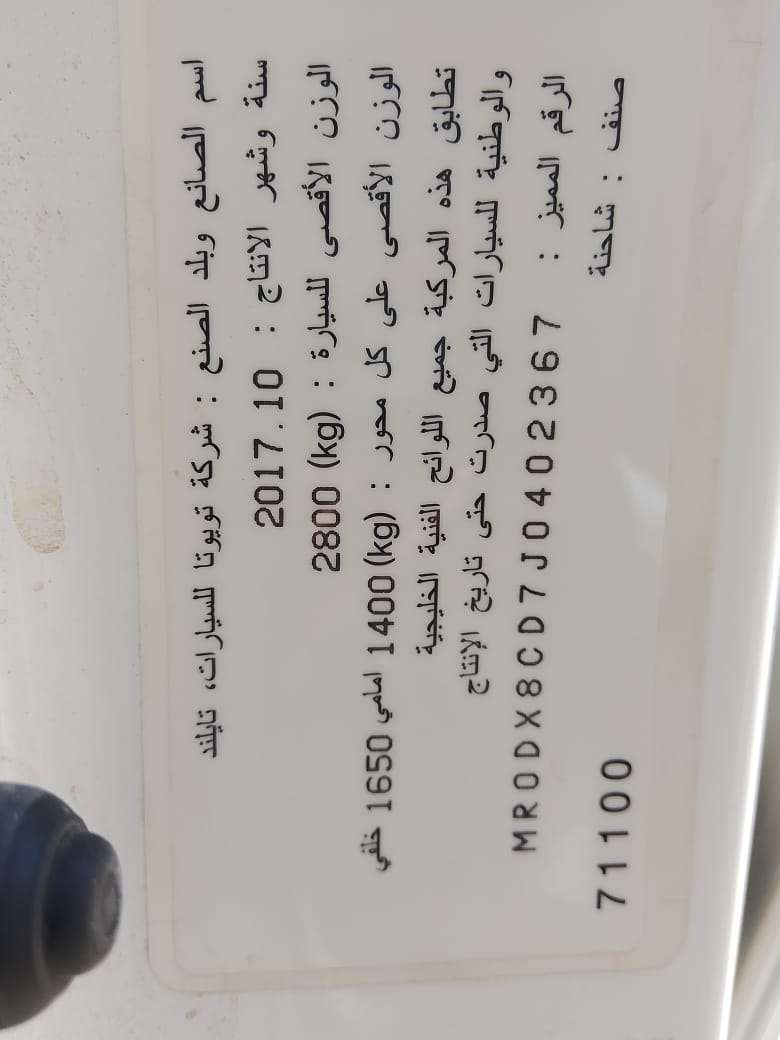 اسم الصانع وبلد الصنع : شركة تويوتا للسيارات، تايلند
سنة وشهر الانتاج : 2017.10
الوزن الأقصى للسيارة : (kg) 2800
الوزن الأقصى على كل محور : (kg) 1400 امامي 1650 خلفي
تطابق هذه المركبة جميع اللوائح الفنية الخليجية
والوطنية للسيارات التي صدرت حتى تاريخ الإنتاج
الرقم المميز : MR0DX8CD7J0402367
صنف : شاحنة 71100